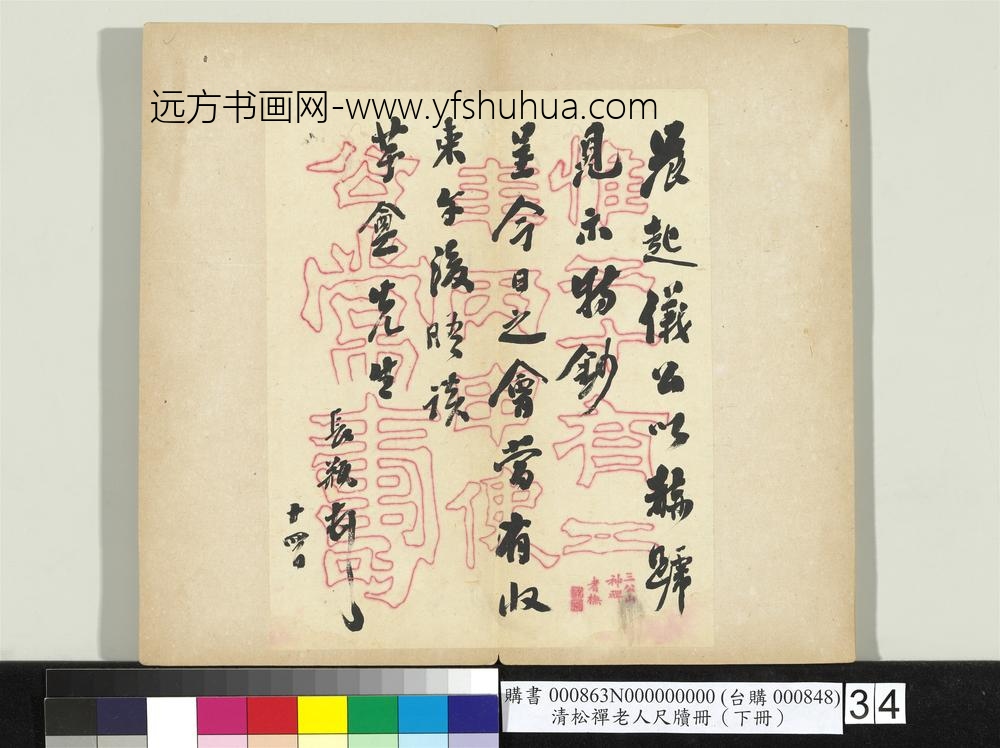 远方书画网-www.yfshuhua.com
晨起儀公以稱號
見示特鈔
呈今日之會當有收
束午後晤談
莘盦先生
長瓶
廿四日
三公山
神碑
者橅
購書 000863N000000000 (台購 000848)
清松禪老人尺牘冊（下冊）
34